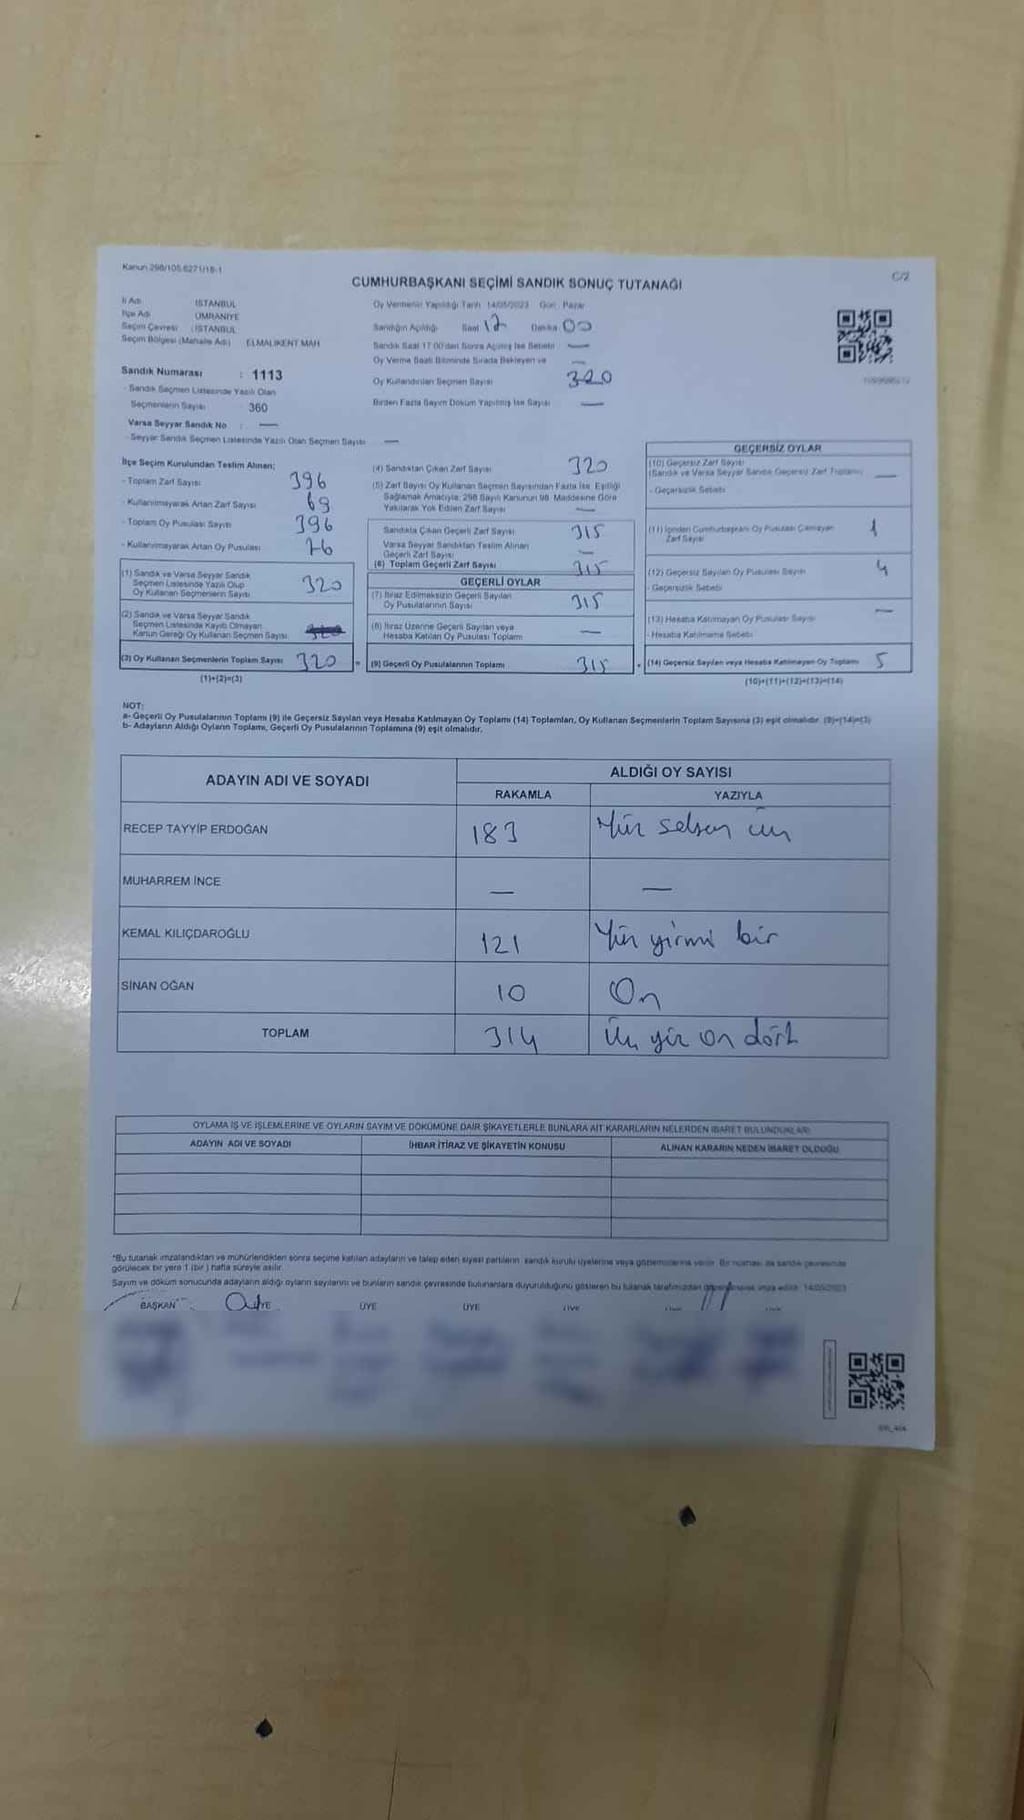 Kanun 298/105.6271/18-1
C/2
CUMHURBAŞKANI SEÇİMİ SANDIK SONUÇ TUTANAĞI
İl Adı İSTANBUL
İlçe Adı ÜMRANİYE
Seçim Çevresi : İSTANBUL
Seçim Bölgesi (Mahalle Adı) ELMALIKENT MAH
Sandık Numarası : 1113
- Sandık Seçmen Listesinde Yazılı Olan
Seçmenlerin Sayısı 360
Varsa Seyyar Sandık No : —
- Seyyar Sandık Seçmen Listesinde Yazılı Olan Seçmen Sayısı —
Oy Vermenin Yapıldığı Tarih 14/05/2023 Gün Pazar
Sandığın Açıldığı Saat 17 Dakika 00
Sandık Saat 17.00'den Sonra Açılmış İse Sebebi —
Oy Verme Saati Bitiminde Sırada Bekleyen ve —
Oy Kullandırılan Seçmen Sayısı 320
Birden Fazla Sayım Döküm Yapılmış İse Sayısı —
İlçe Seçim Kurulundan Teslim Alınan;
- Toplam Zarf Sayısı 396
- Kullanılmayarak Artan Zarf Sayısı 69
- Toplam Oy Pusulası Sayısı 396
- Kullanılmayarak Artan Oy Pusulası 76
(1) Sandık ve Varsa Seyyar Sandık
Seçmen Listesinde Yazılı Olup
Oy Kullanan Seçmenlerin Sayısı 320
(2) Sandık ve Varsa Seyyar Sandık
Seçmen Listesinde Kayıtlı Olmayan
Kanun Gereği Oy Kullanan Seçmen Sayısı
(3) Oy Kullanan Seçmenlerin Toplam Sayısı 320
(1)+(2)=(3)
(4) Sandıktan Çıkan Zarf Sayısı 320
(5) Zarf Sayısı Oy Kullanan Seçmen Sayısından Fazla İse, Eşitliği
Sağlamak Amacıyla, 298 Sayılı Kanunun 98. Maddesine Göre
Yakılarak Yok Edilen Zarf Sayısı —
Sandıkta Çıkan Geçerli Zarf Sayısı 315
Varsa Seyyar Sandıktan Teslim Alınan
Geçerli Zarf Sayısı —
(6) Toplam Geçerli Zarf Sayısı 315
GEÇERLİ OYLAR
(7) İtiraz Edilmeksizin Geçerli Sayılan
Oy Pusulalarının Sayısı 315
(8) İtiraz Üzerine Geçerli Sayılan veya
Hesaba Katılan Oy Pusulası Toplamı —
(9) Geçerli Oy Pusulalarının Toplamı 315
GEÇERSİZ OYLAR
(10) Geçersiz Zarf Sayısı
(Sandık ve Varsa Seyyar Sandık Geçersiz Zarf Toplamı) —
- Geçersizlik Sebebi
(11) İçinden Cumhurbaşkanı Oy Pusulası Çıkmayan
Zarf Sayısı 1
(12) Geçersiz Sayılan Oy Pusulası Sayısı 4
- Geçersizlik Sebebi
(13) Hesaba Katılmayan Oy Pusulası Sayısı —
- Hesaba Katılmama Sebebi
(14) Geçersiz Sayılan veya Hesaba Katılmayan Oy Toplamı 5
(10)+(11)+(12)+(13)=(14)
NOT:
a- Geçerli Oy Pusulalarının Toplamı (9) ile Geçersiz Sayılan veya Hesaba Katılmayan Oy Toplamı (14) Toplamları, Oy Kullanan Seçmenlerin Toplam Sayısına (3) eşit olmalıdır. (9)+(14)=(3)
b- Adayların Aldığı Oyların Toplamı, Geçerli Oy Pusulalarının Toplamına (9) eşit olmalıdır.
ADAYIN ADI VE SOYADI
ALDIĞI OY SAYISI
RAKAMLA YAZIYLA
RECEP TAYYİP ERDOĞAN 183 Yüz seksen üç
MUHARREM İNCE — —
KEMAL KILIÇDAROĞLU 121 Yüz yirmi bir
SİNAN OĞAN 10 On
TOPLAM 314 Üç yüz on dört
OYLAMA İŞ VE İŞLEMLERİNE VE OYLARIN SAYIM VE DÖKÜMÜNE DAİR ŞİKAYETLERLE BUNLARA AİT KARARLARIN NELERDEN İBARET BULUNDUKLARI
ADAYIN ADI VE SOYADI İHBAR İTİRAZ VE ŞİKAYETİN KONUSU ALINAN KARARIN NEDEN İBARET OLDUĞU
*Bu tutanak imzalandıktan ve mühürlendikten sonra seçime katılan adayların ve talep eden siyasi partilerin sandık kurulu üyelerine veya gözlemcilerine verilir. Bir nüshası da sandık çevresinde
görülecek bir yere 1 (bir) hafta süreyle asılır.
Sayım ve döküm sonucunda adayların aldığı oyların sayılarını ve bunların sandık çevresinde bulunanlara duyurulduğunu gösteren bu tutanak tarafımızdan imza edildi. 14/05/2023
BAŞKAN ÜYE ÜYE ÜYE ÜYE